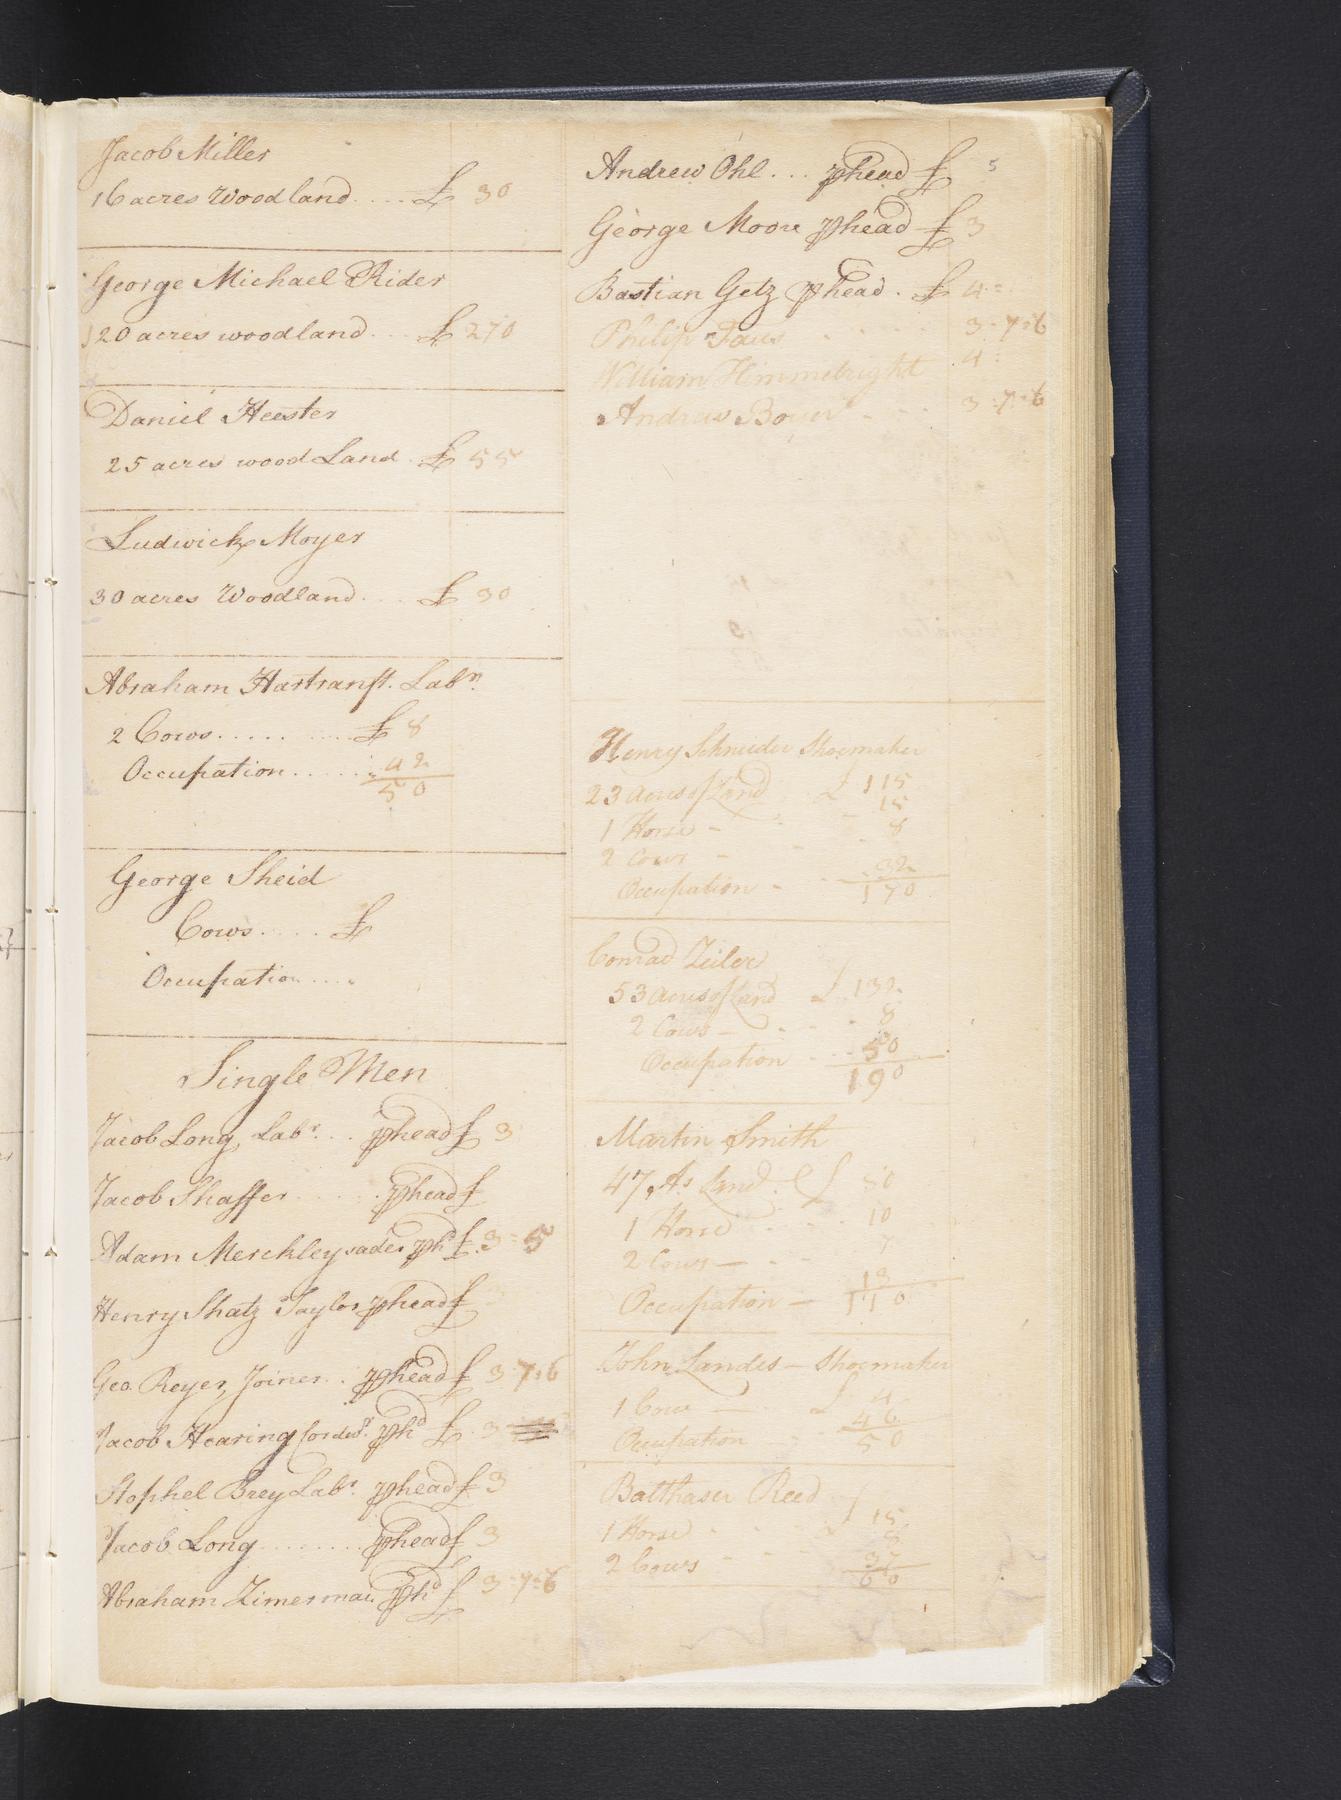 Jacob Miller
16 acres Woodland .... £ 30
George Michael Rider
120 acres woodland ... £ 270
Daniel Heester
25 acres wood Land . £ 55
Ludwick Moyer
30 acres Woodland .... £ 30
Abraham Hartranft. Labr.
2 Cows ......... £ 8
Occupation ....... 42
50
George Sheid
Cows ..... £
Occupation ....
Single Men
Jacob Long, Labr. .. phead £ 3
Jacob Shaffer ....... phead £
Adam Merckley phd £ 3 = 5
Henry Shatz Taylor phead £
Geo. Reyer, Joiner .. phead £ 3 = 7 = 6
Jacob Hearing phd £ 3
Stophel Brey Labr. phead £ 3
Jacob Long ......... phead £ 3
Abraham Zimerman phd £ 3 = 7 = 6
Andrew Ohl ... phead £ 5
George Moore phead £ 3
Bastian Getz phead . £ 4 =
Philip Faus 3 = 7 = 6
William Himmelright 4 =
Andreas Boyer - - - 3 = 7 = 6
Henry Schneider Shoemaker
23 Acres of Land £ 115
1 Horse - - 15
2 Cows - - 8
Occupation - 32
170
Conrad Zeiler
53 Acres of Land £ 132
2 Cows - - - 8
Occupation - - 50
190
Martin Smith
47 As Land £ 80
1 Horse 10
2 Cows - - 7
Occupation - 13
110
John Landes - Shoemaker
1 Cow - £ 4
Occupation 46
50
Balthaser Reed
1 Horse - - £ 15
2 Cows - - - 8
60